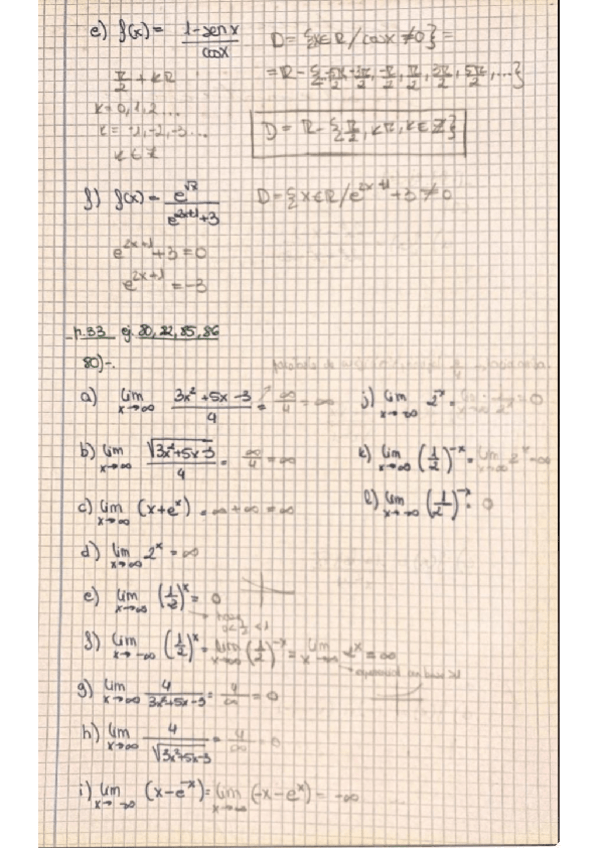 e) f(x) = (1 - sen x)/(cos x)   D = {x ∈ R / cos x ≠ 0} =
π/2 + kπ   = R - {..., -3π/2, -π/2, π/2, 3π/2, 5π/2, ...}
k = 0, 1, 2...
k = -1, -2, -3...   D = R - {π/2, kπ, k ∈ Z}
k ∈ Z
f) f(x) = e^√x/(e^(2x+1) + 3)   D = {x ∈ R / e^(2x+1) + 3 ≠ 0
e^(2x+1) + 3 = 0
e^(2x+1) = -3
p.33 ej. 80, 22, 85, 86
80)-.
a) lim x→∞ (3x² + 5x - 3)/4 = ∞/4 = ∞
j) lim 2^x = = 0
b) lim x→∞ √(3x²+5x-3)/4 = ∞/4 = ∞
k) lim x→∞ (1/2)^-x = lim x→∞ 2^x = ∞
c) lim x→∞ (x + e^x) = ∞ + ∞ = ∞
l) lim (1/2)^-x = 0
d) lim x→∞ 2^x = ∞
e) lim x→∞ (1/2)^x = 0
f) lim x→-∞ (1/2)^x = lim x→∞ (1/2)^-x = lim x→∞ 2^x = ∞
g) lim x→∞ 4/(3x²+5x-3) = 4/∞ = 0
h) lim x→∞ 4/√(3x²+5x-3) = 4/∞ = 0
i) lim x→-∞ (x - e^-x) = lim x→∞ (-x - e^x) = -∞